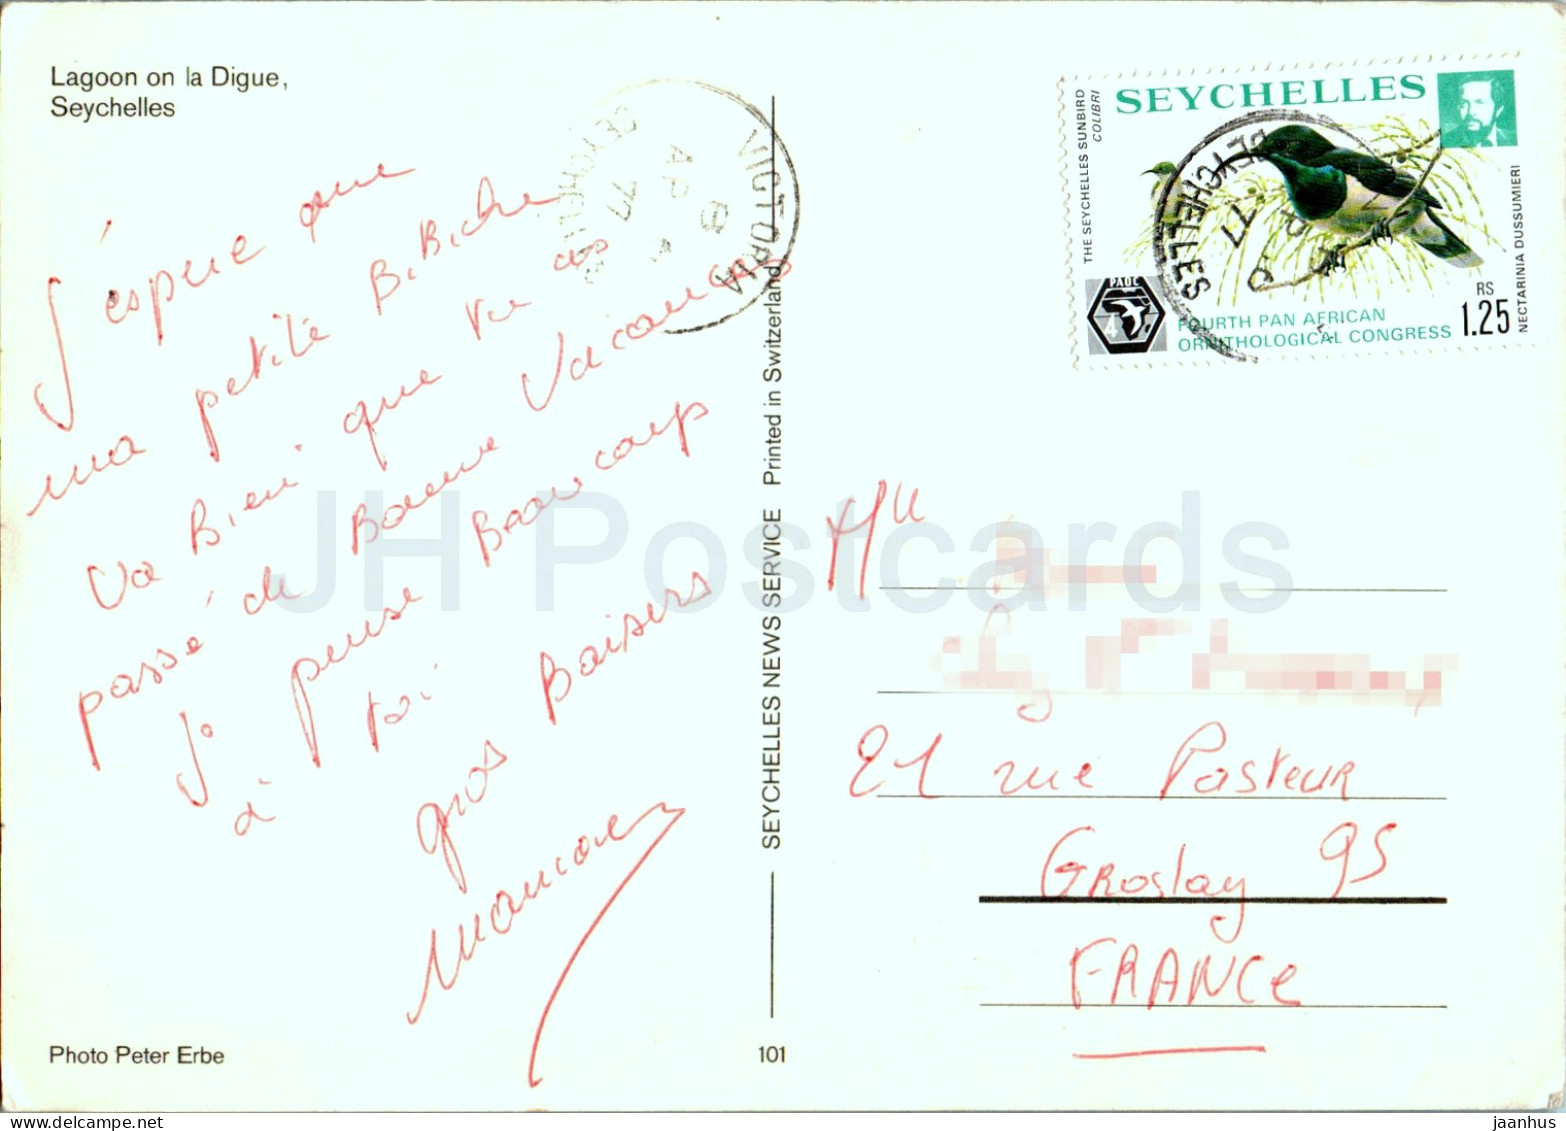 Lagoon on la Digue,
Seychelles
J'espere que
ma petite Biche
va Bien que tu as
passé de Bonne Vacances
Je pense Beaucoup
à toi
gros Baisers
Photo Peter Erbe
SEYCHELLES NEWS SERVICE Printed in Switzerland
101
VICTORIA
SEYCHELLES
AP
77
SEYCHELLES
THE SEYCHELLES SUNBIRD
COLIBRI
NECTARINIA DUSSUMIERI
PAOC
4
FOURTH PAN AFRICAN
ORNITHOLOGICAL CONGRESS
RS
1.25
SEYCHELLES
77
21 rue Pasteur
Groslay 95
FRANCE
JH Postcards
www.jaanhus.com